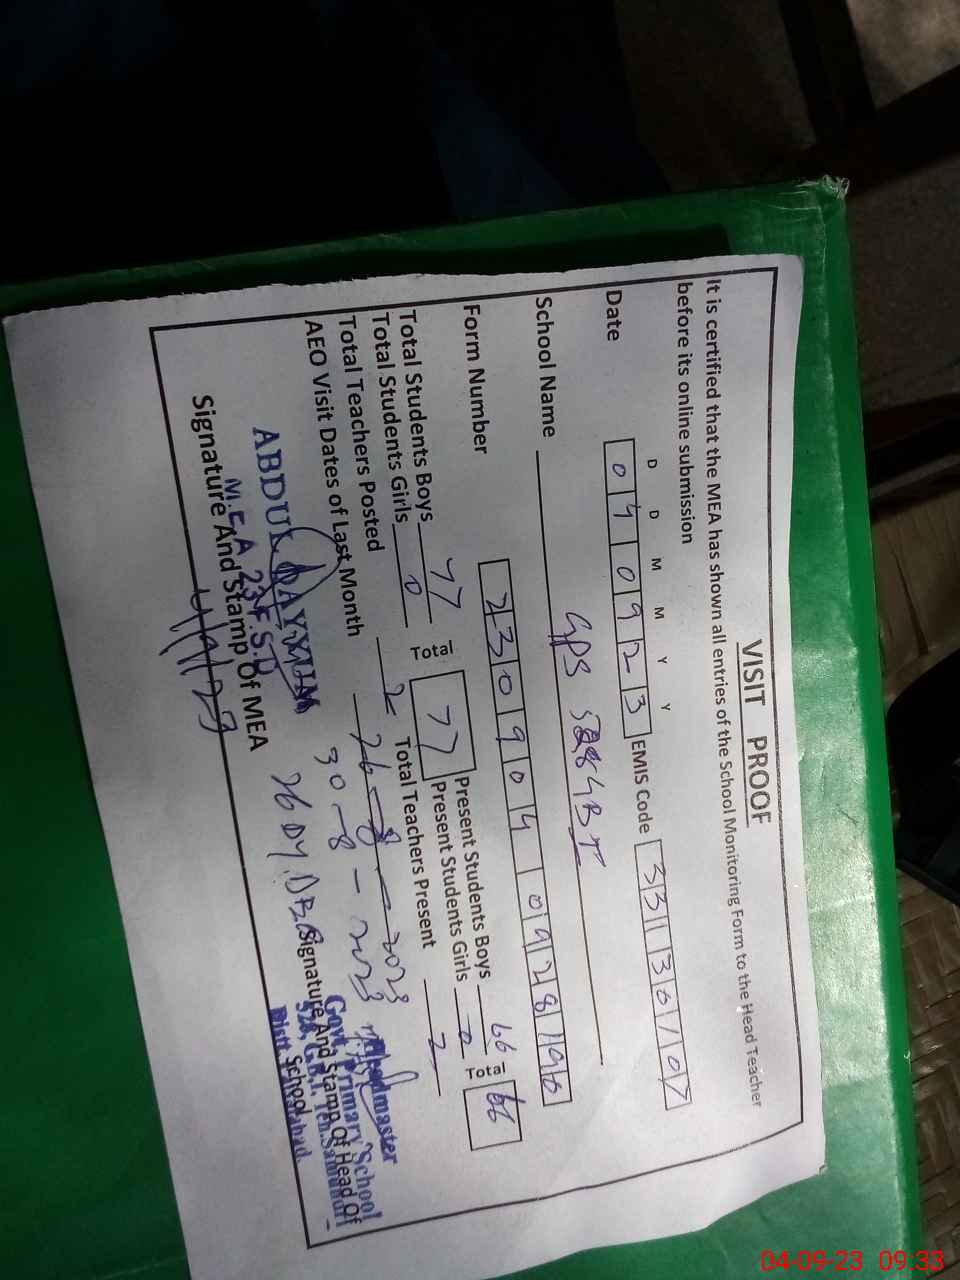 VISIT PROOF
It is certified that the MEA has shown all entries of the School Monitoring Form to the Head Teacher
before its online submission
D D M M Y Y
Date 0 4 0 9 2 3 EMIS Code 3 3 1 3 0 1 0 7
School Name GPS 528 GB I
Form Number 2 3 0 9 0 4 0 9 2 8 1 9 6
Total Students Boys 77 Total 77 Present Students Boys 66 Total 66
Total Students Girls 0 Present Students Girls 0
Total Teachers Posted 2 Total Teachers Present 2
AEO Visit Dates of Last Month 26-8-2023
30-8-2023
ABDUL QAYYUM
M.E.A 23 F.S.D
Signature And Stamp Of MEA
4/9/23
Headmaster
Govt. Primary School
528, G.B.I. Teh. Samundri
Distt. Faisalabad.
Signature And Stamp Of Head Of
School
04-09-23 09:33